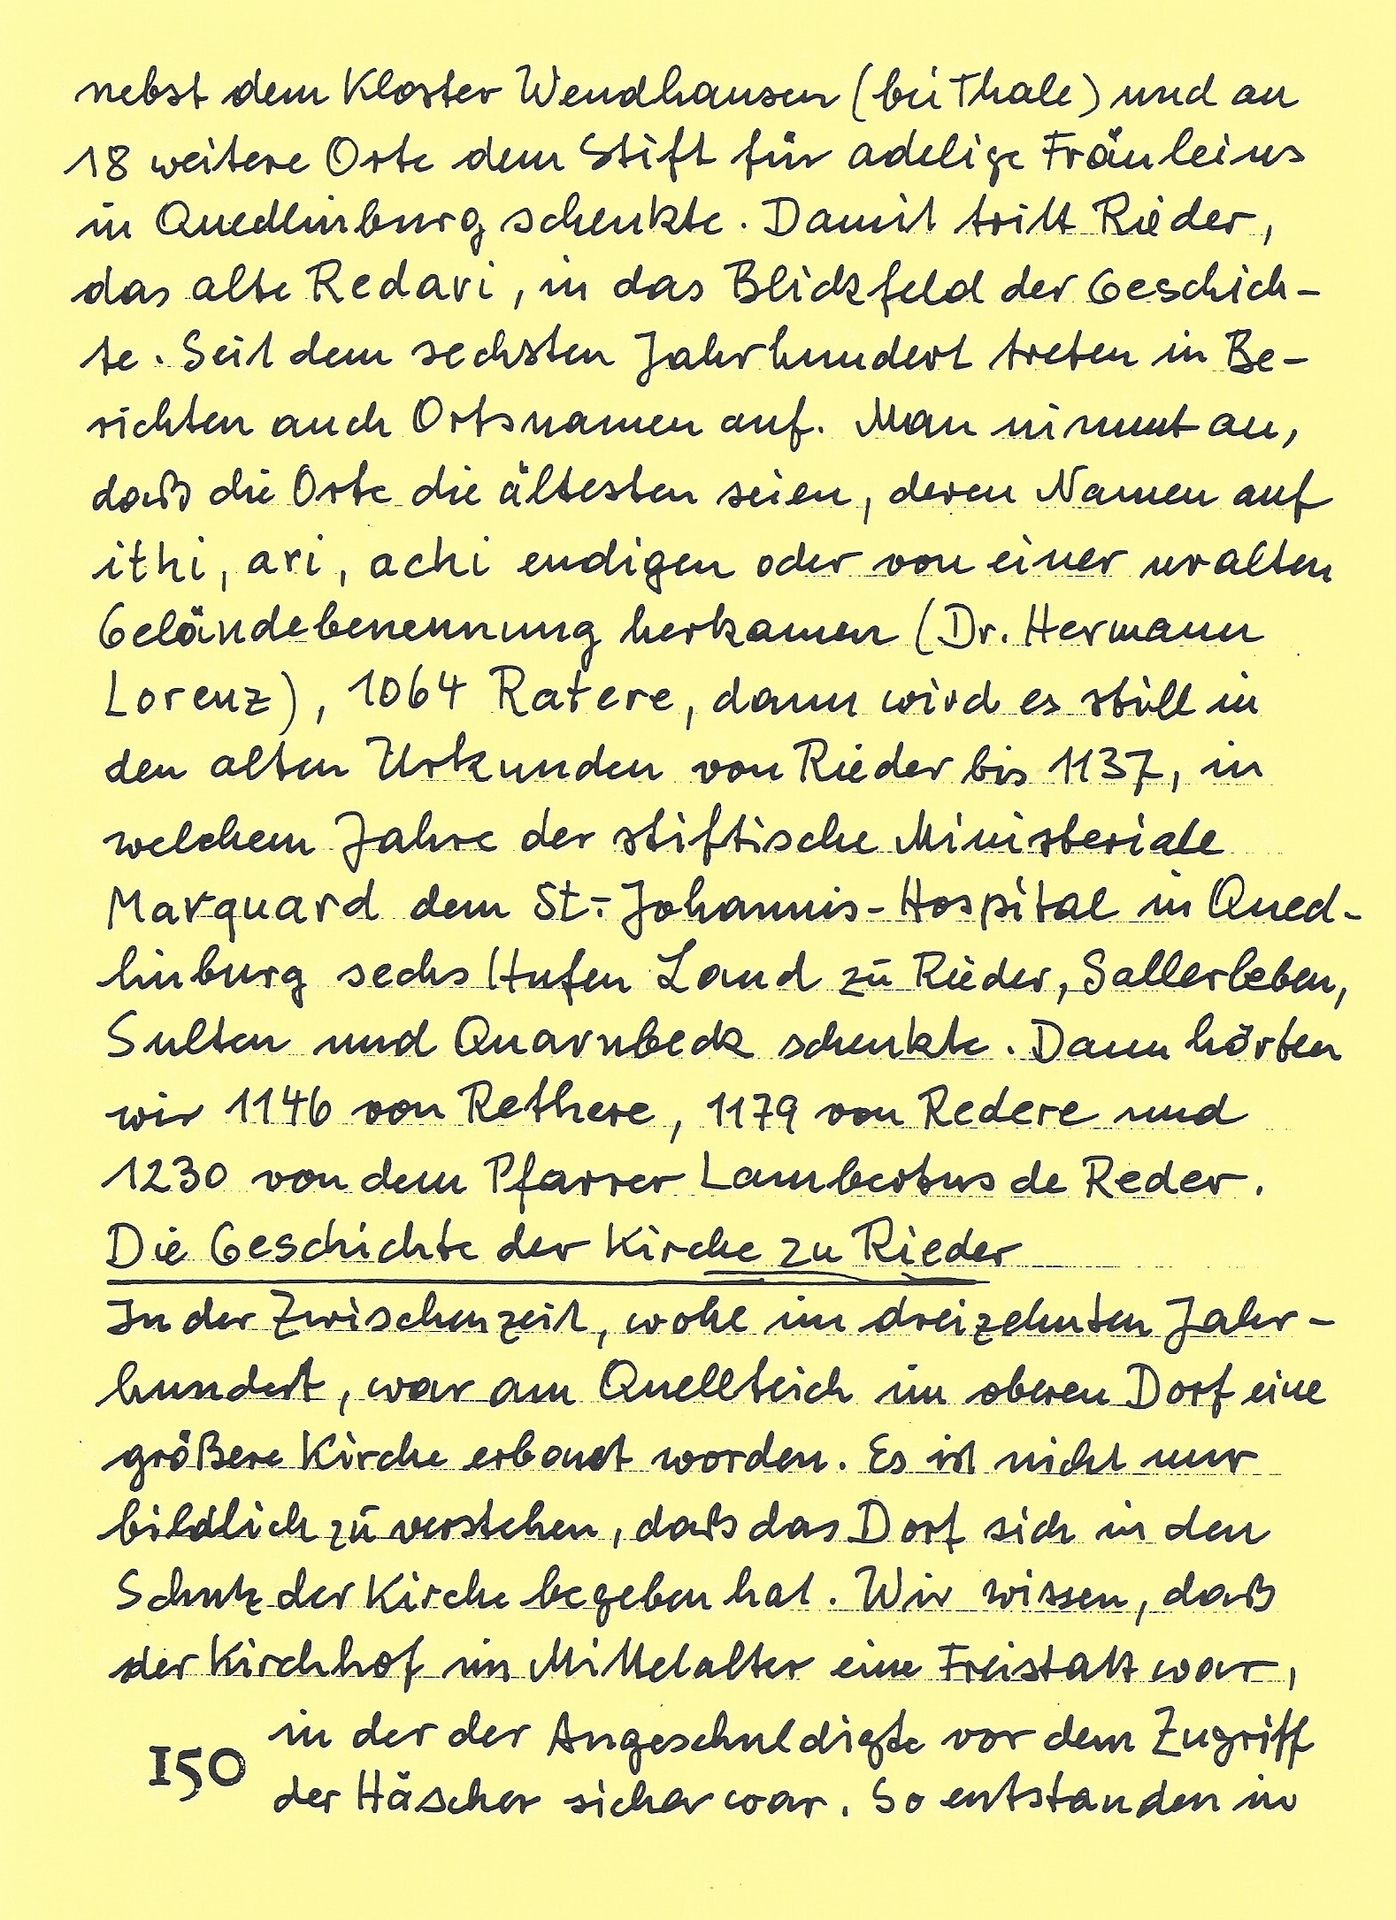 nebst dem Kloster Wendhausen (bei Thale) und an
18 weitere Orte dem Stift für adelige Fräuleins
in Quedlinburg schenkte. Damit tritt Rieder,
das alte Redari, in das Blickfeld der Geschich-
te. Seit dem sechsten Jahrhundert treten in Be-
richten auch Ortsnamen auf. Man nimmt an,
daß die Orte die ältesten seien, deren Namen auf
ithi, ari, achi endigen oder von einer uralten
Geländebenennung herkamen (Dr. Hermann
Lorenz), 1064 Ratere, dann wird es still in
den alten Urkunden von Rieder bis 1137, in
welchem Jahre der stiftische Ministeriale
Marquard dem St.-Johannis-Hospital in Qued-
linburg sechs Hufen Land zu Rieder, Sallersleben,
Sulten und Quarnbeck schenkte. Dann hörten
wir 1146 von Rethere, 1179 von Redere und
1230 von dem Pfarrer Lambertus de Reder.
Die Geschichte der Kirche zu Rieder
In der Zwischenzeit, wohl im dreizehnten Jahr-
hundert, war am Quellteich im oberen Dorf eine
größere Kirche erbaut worden. Es ist nicht nur
bildlich zu verstehen, daß das Dorf sich in den
Schutz der Kirche begeben hat. Wir wissen, daß
der Kirchhof im Mittelalter eine Freistatt war,
in der der Angeschuldigte vor dem Zugriff
150 der Häscher sicher war. So entstanden in